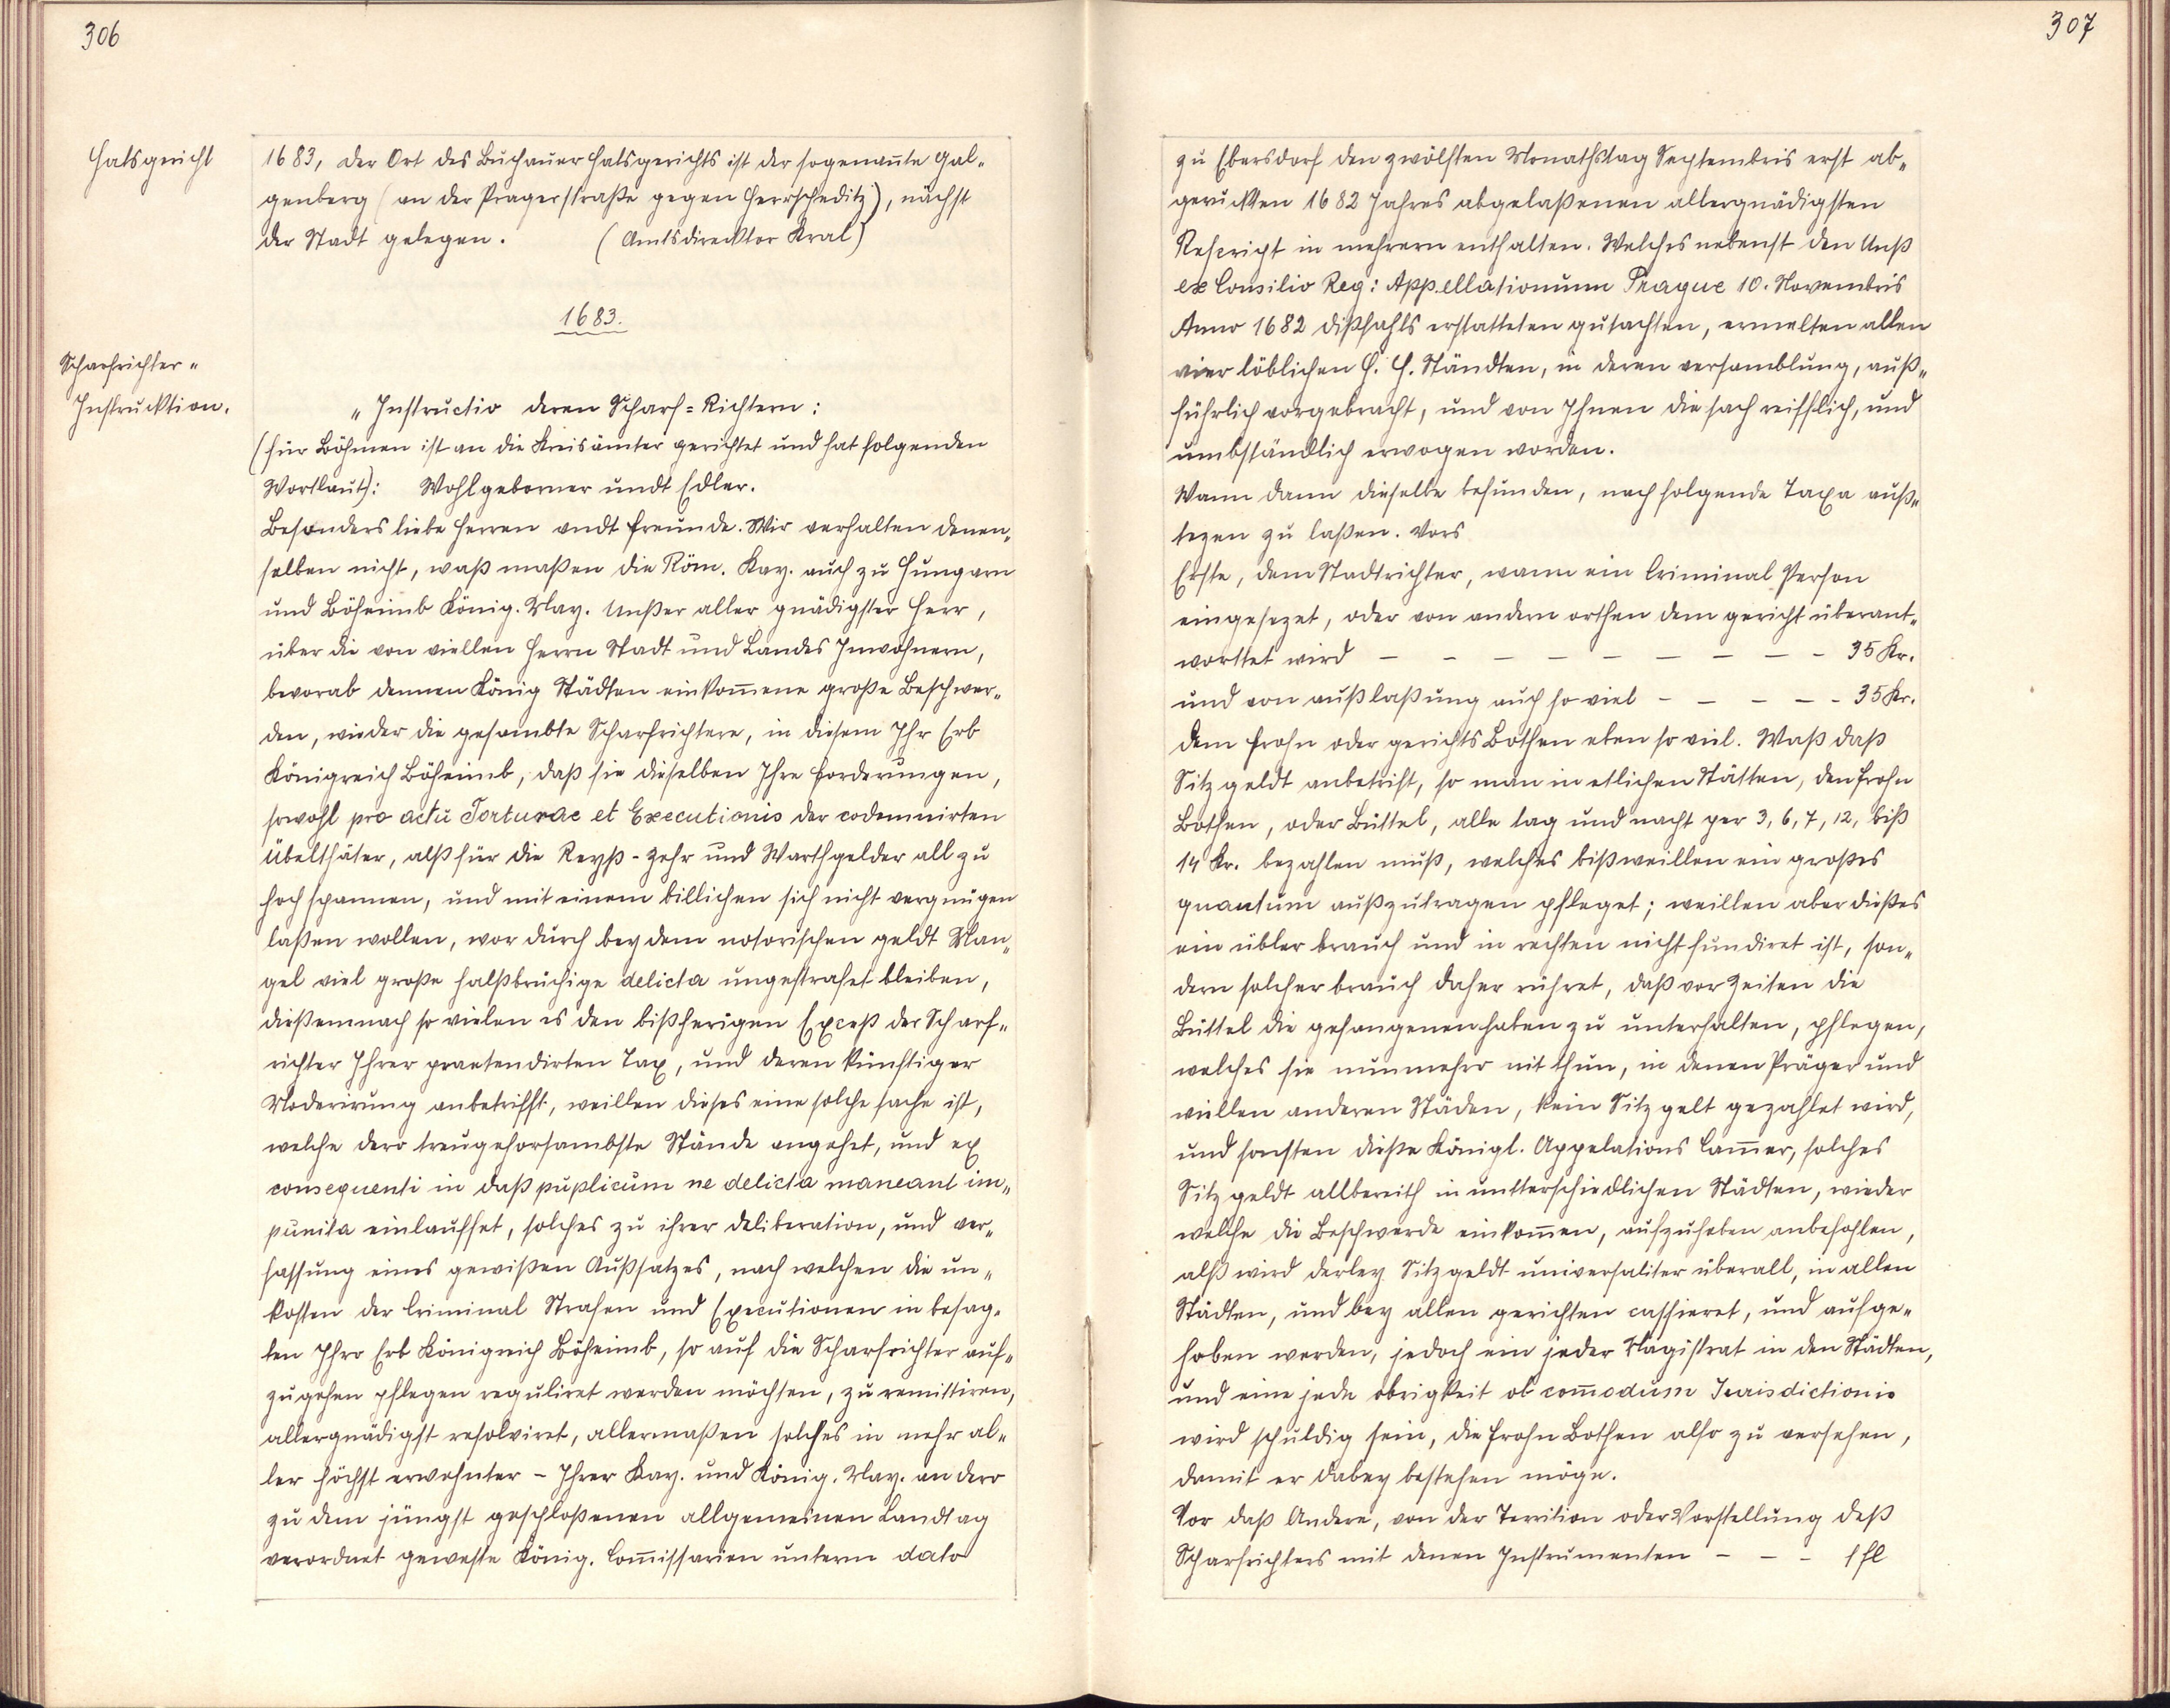 306
Halsgericht
1683, der Ort des Buchauer Halsgerichts ist der sogenannte Gal„
genberg (an der Pragerstraße gegen Herrscheditz), nächst
der Stadt gelegen. (Amtsdirecktor Kral)
1683.
Scharfrichter„
Instrucktion.
„Instructio deren Scharf=Richtern:
(für Böhmen ist an die Kreisämter gerichtet und hat folgenden
Wortlaut): Wohlgeborner undt Edler.
Besonders liebe Herren undt Freunde. Wir verhalten denen„
selben nicht, waß maßen die Röm. Kay. auch zu Hungarn
und Böheimb König. May. Unßer aller gnädigster Herr,
über die von viellen Herrn Stadt und Landes Inwohnern,
bevorab dennen König Städten einkom̄ene große Beschwer„
den, wieder die gesambte Scharfrichtere, in diesem Ihr Erb
Königreich Böheimb, daß sie dieselben Ihre Forderungen,
sowohl pro actu Torturae et Executionis der codemnirten
Übelthäter, alß für die Reyß-Zehr und Warthgelder all zu
hoch spannen, und mit einem billichen sich nicht vergnügen
laßen wollen, wor durch bey dem notorischen geldt Man„
gel viel große halßbrüchige delicta ungestrafet bleiben,
dießemnach so vielen es den bißherigen Exceß der Scharf„
richter Ihrer praetendirten Tax, und deren künftiger
Moderirung anbetrifft, weillen dieses eine solche sache ist,
welche dero treugehorsambste Stände angehet, und ex
consequenti in daß puplicum ne delicta maneant im„
punita einlauffet, solches zu ihrer deliberation, und ver„
fassung eines gewißen Außsatzes, nach welchen die un„
kosten der Criminal Strafen und Executionen in besag„
ten Ihro Erb Königreich Böheimb, so auf die Scharfrichter auf„
zugehen pflegen reguliret werden möchten, zu remittiren,
allergnädigst resolviret, allermaßen solches in mehr al„
ler höchst erwehnter – Ihrer Kay. und König. May. an dero
zu dem jüngst geschloßenen allgemeinen Landtag
verordnet geweste König. Com̄issarien unterm dato
307
zu Ebersdorf den zwölften Monathstag Septembris erst ab„
geruckten 1682 Jahres abgelaßenen allergnädigsten
Rescript in mehrern enthalten. Welches nebenst den Unß
ex Consilio Reg: Appellationum Prague 10. Novembris
Anno 1682 dißfahls erstatteten gutachten, ermelten allen
vier löblichen H. H. Ständten, in deren versamblung, auß„
führlich vorgebracht, und von Ihnen die sach reifflich, und
umbständlich erwogen worden.
Wann dann dieselbe befunden, nachfolgende Taxa auß„
sezen zu laßen. Vors
Erste, dem Stadtrichter, wann ein Criminal Person
eingesezet, oder von andern orthen dem gericht überant„
worttet wird – – – – – – – – – 35 Kr.
und von außlaßung auch so viel – – – – – 35 Kr.
dem frohn oder gerichts Bothen eben so viel. Waß daß
Sitzgeldt anbetrift, so man in etlichen Stätten, den frohn
Bothen, oder Büttel, alle tag und nacht per 3, 6, 7, 12, biß
14 Kr. bezahlen muß, welches bißweillen ein großes
quantum außzutragen pfleget; weillen aber dießes
ein übler brauch und in rechten nicht fundiret ist, son„
dern solcher brauch daher rühret, daß vor Zeiten die
Büttel die gefangenen haben zu unterhalten, pflegen,
welches sie nunmehro nit thun, in denen Präger und
viellen anderen Städen, kein Sitzgelt gezahlet wird,
und sonsten dieße Königl. Appelations Cam̄er, solches
Sitzgeldt allbereith in untterschiedlichen Städten, wieder
welche die Beschwerde einkom̄en, aufzuheben anbefohlen,
alß wird derley Sitzgeldt universaliter überall, in allen
Städten, und bey allen gerichten cassieret, und aufge„
hoben werden, jedoch ein jeder Magistrat in den Städten,
und eine jede obrigkeit ob com̄odum Jurisdictionis
wird schuldig sein, die frohn Bothen also zu versehen,
damit er dabey bestehen möge.
Vor daß Andere, von der Territion oder Vorstellung deß
Scharfrichters mit denen Instrumenten – – – 1 fl